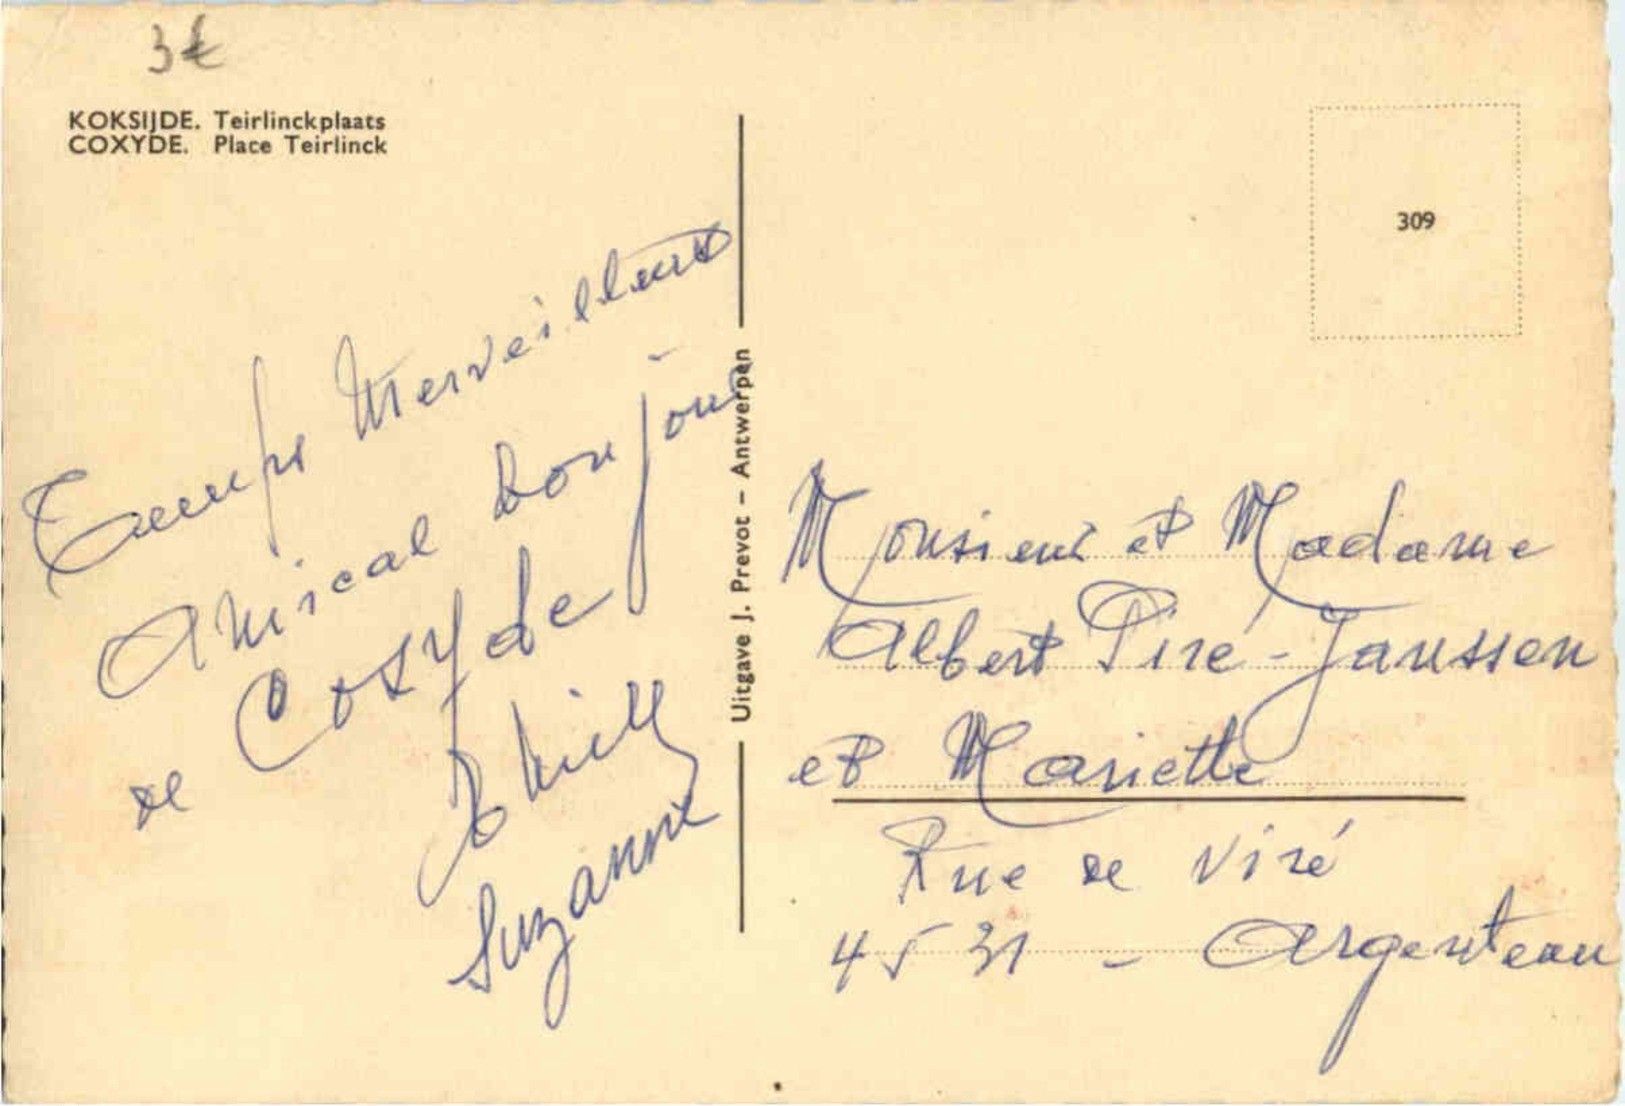 3€
KOKSIJDE. Teirlinckplaats
COXYDE. Place Teirlinck
Temps Merveilleux
Amical bonjour
de Coxyde
Suzanne
Uitgave J. Prevot - Antwerpen
309
Monsieur et Madame
Albert Piré-Janssen
et Mariette
Rue de Visé
4531 - Argenteau